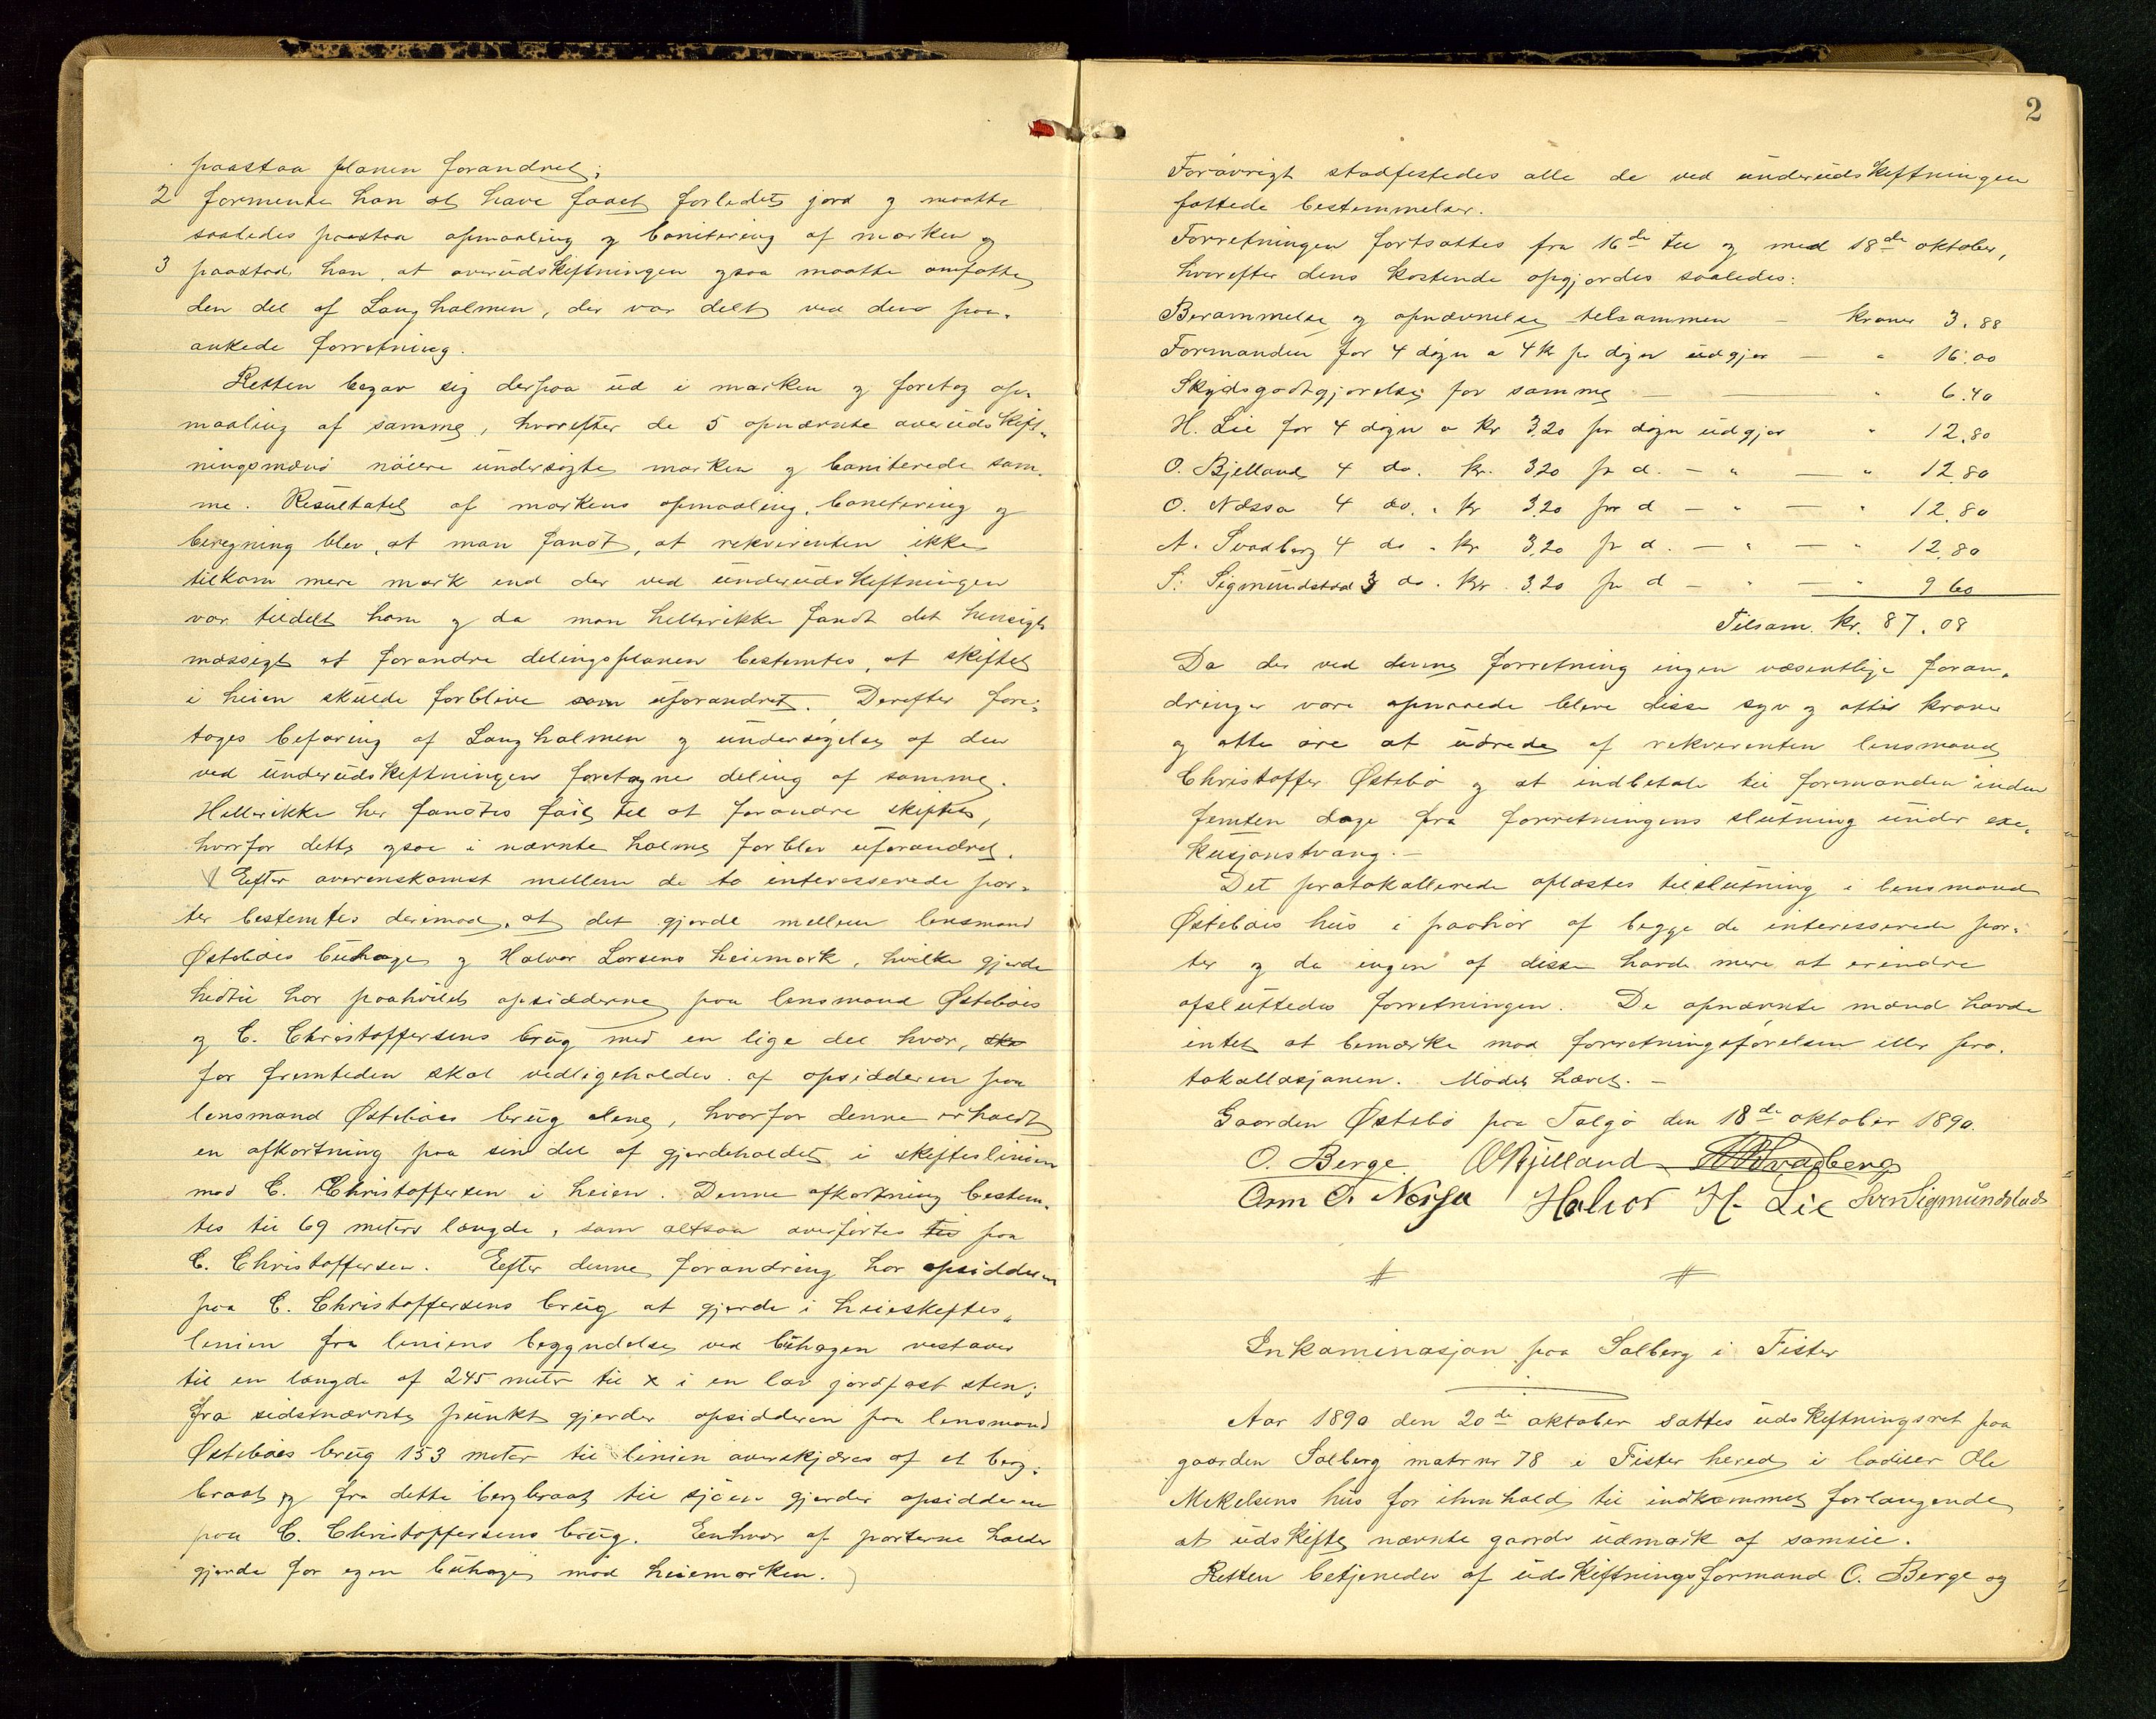 paastaa planen forandret;
2 formente han at have faaet forlidet jord og maatte
saaledes paastaa opmaaling og bonitering af marken og
3 paastod han, at overudskiftningen ogsaa maatte omfatte
den del af Langholmen, der var delt ved den paa-
ankede forretning.
Retten begav sig derpaa ud i marken og foretog op-
maaling af samme, hvorefter de 5 opnævnte overudskift-
ningsmænd nöiere undersögte marken og boniterede sam-
me. Resultatet af markens opmaaling, bonitering og
beregning blev, at man fandt, at rekvirenten ikke
tilkom mere mark end der ved underudskiftningen
var tildelt ham og da man hellerikke fandt det hensigts
mæssigt at forandre delingsplanen bestemtes, at skiftet
i heien skulde forblive som uforandret. Derefter fore-
toges befaring af Langholmen og undersögelse af den
ved underudskiftningen foretagne deling af samme.
Hellerikke her fandtes föie til at forandre skiftet,
hvorfor dette ogsaa i nævnte holme forblev uforandret.
Efter overenskomst mellem de to interesserede par-
ter bestemtes derimod, at det gjerde mellem lensmand
Östeböes buhage og Halvor Larsens heiemark, hvilke gjerde
hidtil har paahvilet opsidderne paa lensmand Östeböes
og C. Christoffersens brug med en lige del hver, ska
for fremtiden skal vedligeholdes af opsidderen paa
lensmand Östeböes brug alene, hvorfor denne erholdt
en afkortning paa sin del af gjerdeholdet i skifteslinien
mod C. Christoffersen i heien. Denne afkortning bestem-
tes til 69 meters længde, som altsaa overförtes til paa
C. Christoffersen. Efter denne forandring har opsidderen
paa C. Christoffersens brug at gjerde i heieskiftes-
linien fra liniens begyndelse ved buhagen vestover
til en længde af 245 meter til x i en lav jordfast sten;
fra sidstnævnte punkt gjerder opsidderen paa lensmand
Östeböes brug 153 meter til linien overskjæres af et berg-
braat og fra dette bergbraat til sjöen gjerder opsidderen
paa C. Christoffersens brug. Enhver af parterne holder
gjerde for egen buhage mod heiemarken.
2
Forövrigt stadfestedes alle de ved underudskiftningen
fattede bestemmelser.
Forretningen fortsattes fra 16de til og med 18de oktober,
hvorefter dens kostende opgjordes saaledes:
Berammelse og opnævnelse tilsammen - kroner 3.88
Formanden for 4 dögn a 4 kr pr dögn udgjör — " 16.00
Skydsgodtgjörelse for samme — — " 6.40
H. Lie for 4 dögn a kr 3.20 pr dögn udgjör " 12.80
O. Bjelland 4 do. kr. 3.20 pr d. - " — " 12.80
O. Nössa 4 do. " kr 3.20 pr d - " — " 12.80
A. Svadberg 4 do " kr 3.20 pr d. — " — " 12.80
S. Sigmundstad 3 do. kr. 3.20 pr d - " — " 9 60
Tilsam. kr. 87.08
Da der ved denne forretning ingen væsentlige foran-
dringer vare opnaaede bleve disse syv og otti kroner
og otte öre at udrede af rekvirenten lensmand
Christoffer Östebö og at indbetale til formanden inden
femten dage fra forretningens slutning under exe-
kusjonstvang. -
Det protokollerede oplæstes tilslutning i lensmand
Östeböes hus i paahör af begge de interesserede par-
ter og da ingen af disse havde mere at erindre
afsluttedes forretningen. De opnævnte mænd havde
intet at bemærke mod forretningsförelsen eller pro-
tokollasjonen. Mödet hævet. -
Gaarden Östebö paa Talgö den 18de oktober 1890.
O. Berge. O Bjelland A Svadberg
Osm O. Nössa Halvor H. Lie Sven Sigmundstad
# #
Inkaminasjon paa Solberg i Fister
Aar 1890 den 20de oktober sattes udskiftningsret paa
gaarden Solberg matr nr 78 i Fister hered i lodeier Ole
Mikelsens hus for i henhold til indkommet forlangende
at udskifte nævnte gaards udmark af sameie.
Retten betjenedes af udskiftningsformand O. Berge og